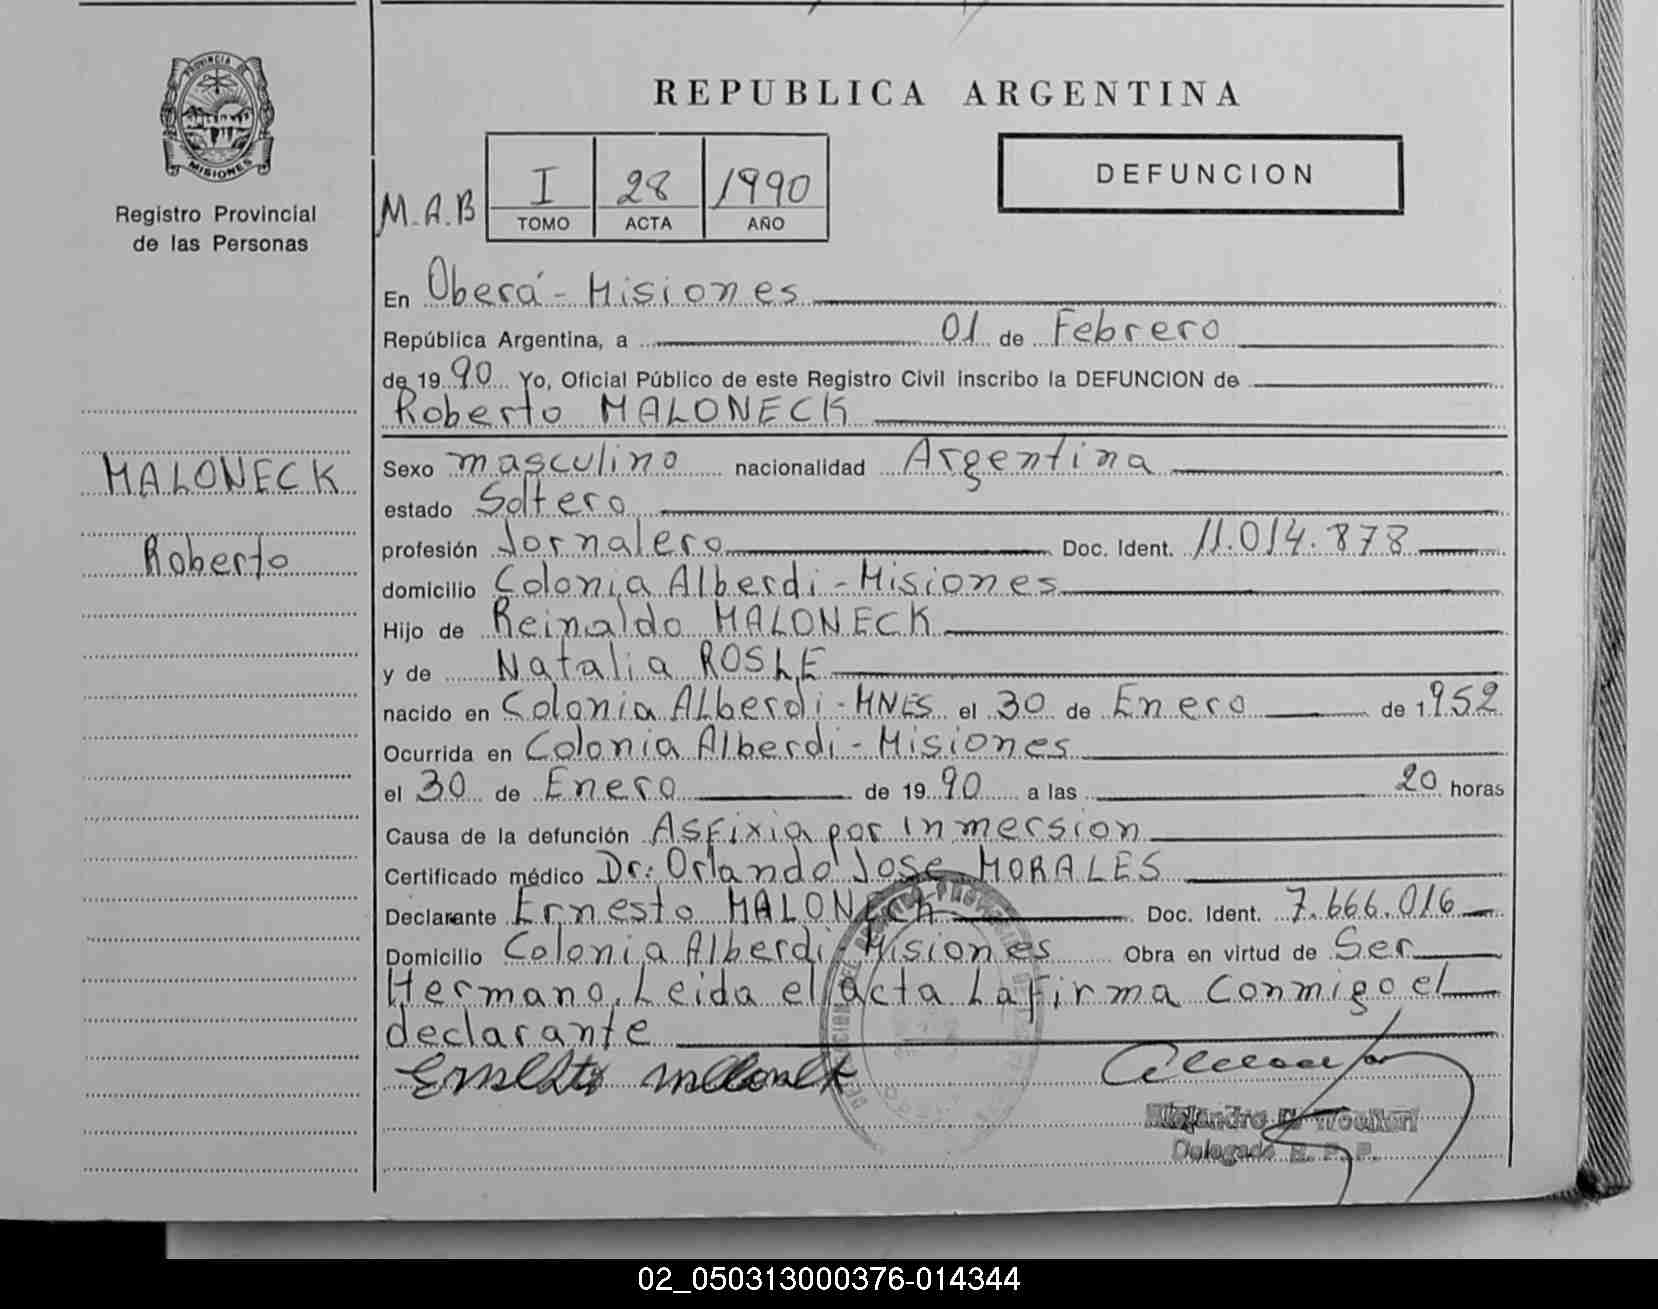 PROVINCIA DE
MISIONES
Registro Provincial
de las Personas
MALONECK
Roberto
REPUBLICA ARGENTINA
M.A.B
I 28 1990
TOMO ACTA AÑO
DEFUNCION
En Oberá - Misiones
República Argentina, a 01 de Febrero
de 19 90 Yo, Oficial Público de este Registro Civil inscribo la DEFUNCION de
Roberto MALONECK
Sexo masculino nacionalidad Argentina
estado Soltero
profesión Jornalero Doc. Ident. 11.014.878
domicilio Colonia Alberdi - Misiones
Hijo de Reinaldo MALONECK
y de Natalia ROSLE
nacido en Colonia Alberdi - MNES el 30 de Enero de 1952
Ocurrida en Colonia Alberdi - Misiones
el 30 de Enero de 19 90 a las 20 horas
Causa de la defunción Asfixia por inmersion
Certificado médico Dr: Orlando Jose MORALES
Declarante Ernesto MALONECK Doc. Ident. 7.666.016
Domicilio Colonia Alberdi - Misiones Obra en virtud de Ser
Hermano. Leida el acta La firma Conmigo el
declarante
Ernesto
Delegado R. P. P.
02_050313000376-014344